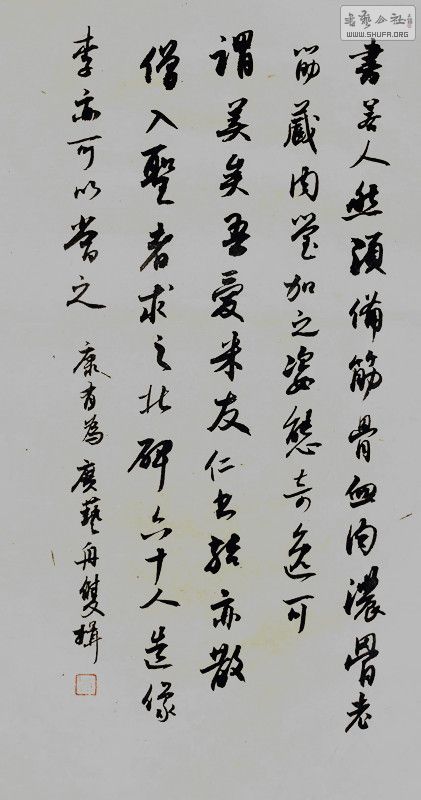 書若人然須備筋骨血肉濃骨老
筋藏肉瑩加之姿態奇逸可
謂美矣吾愛米友仁书殆亦散
僧入聖者求之北碑六十人造像
李亦可以當之 康有為廣藝舟雙楫
書藝公社
WWW.SHUFA.ORG